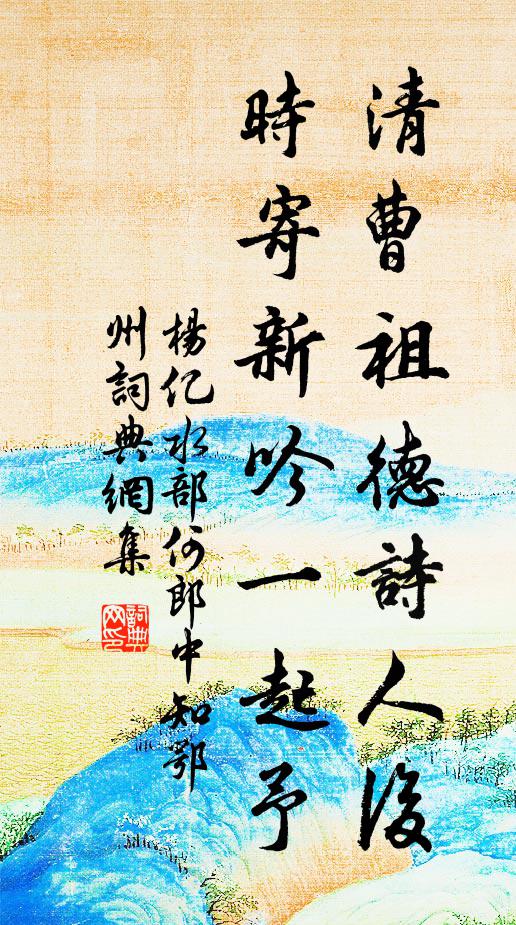 清曹祖德詩人後
時寄新吟一起予
楊億水部何郎中知鄂
州詞典網集
詞典
网印